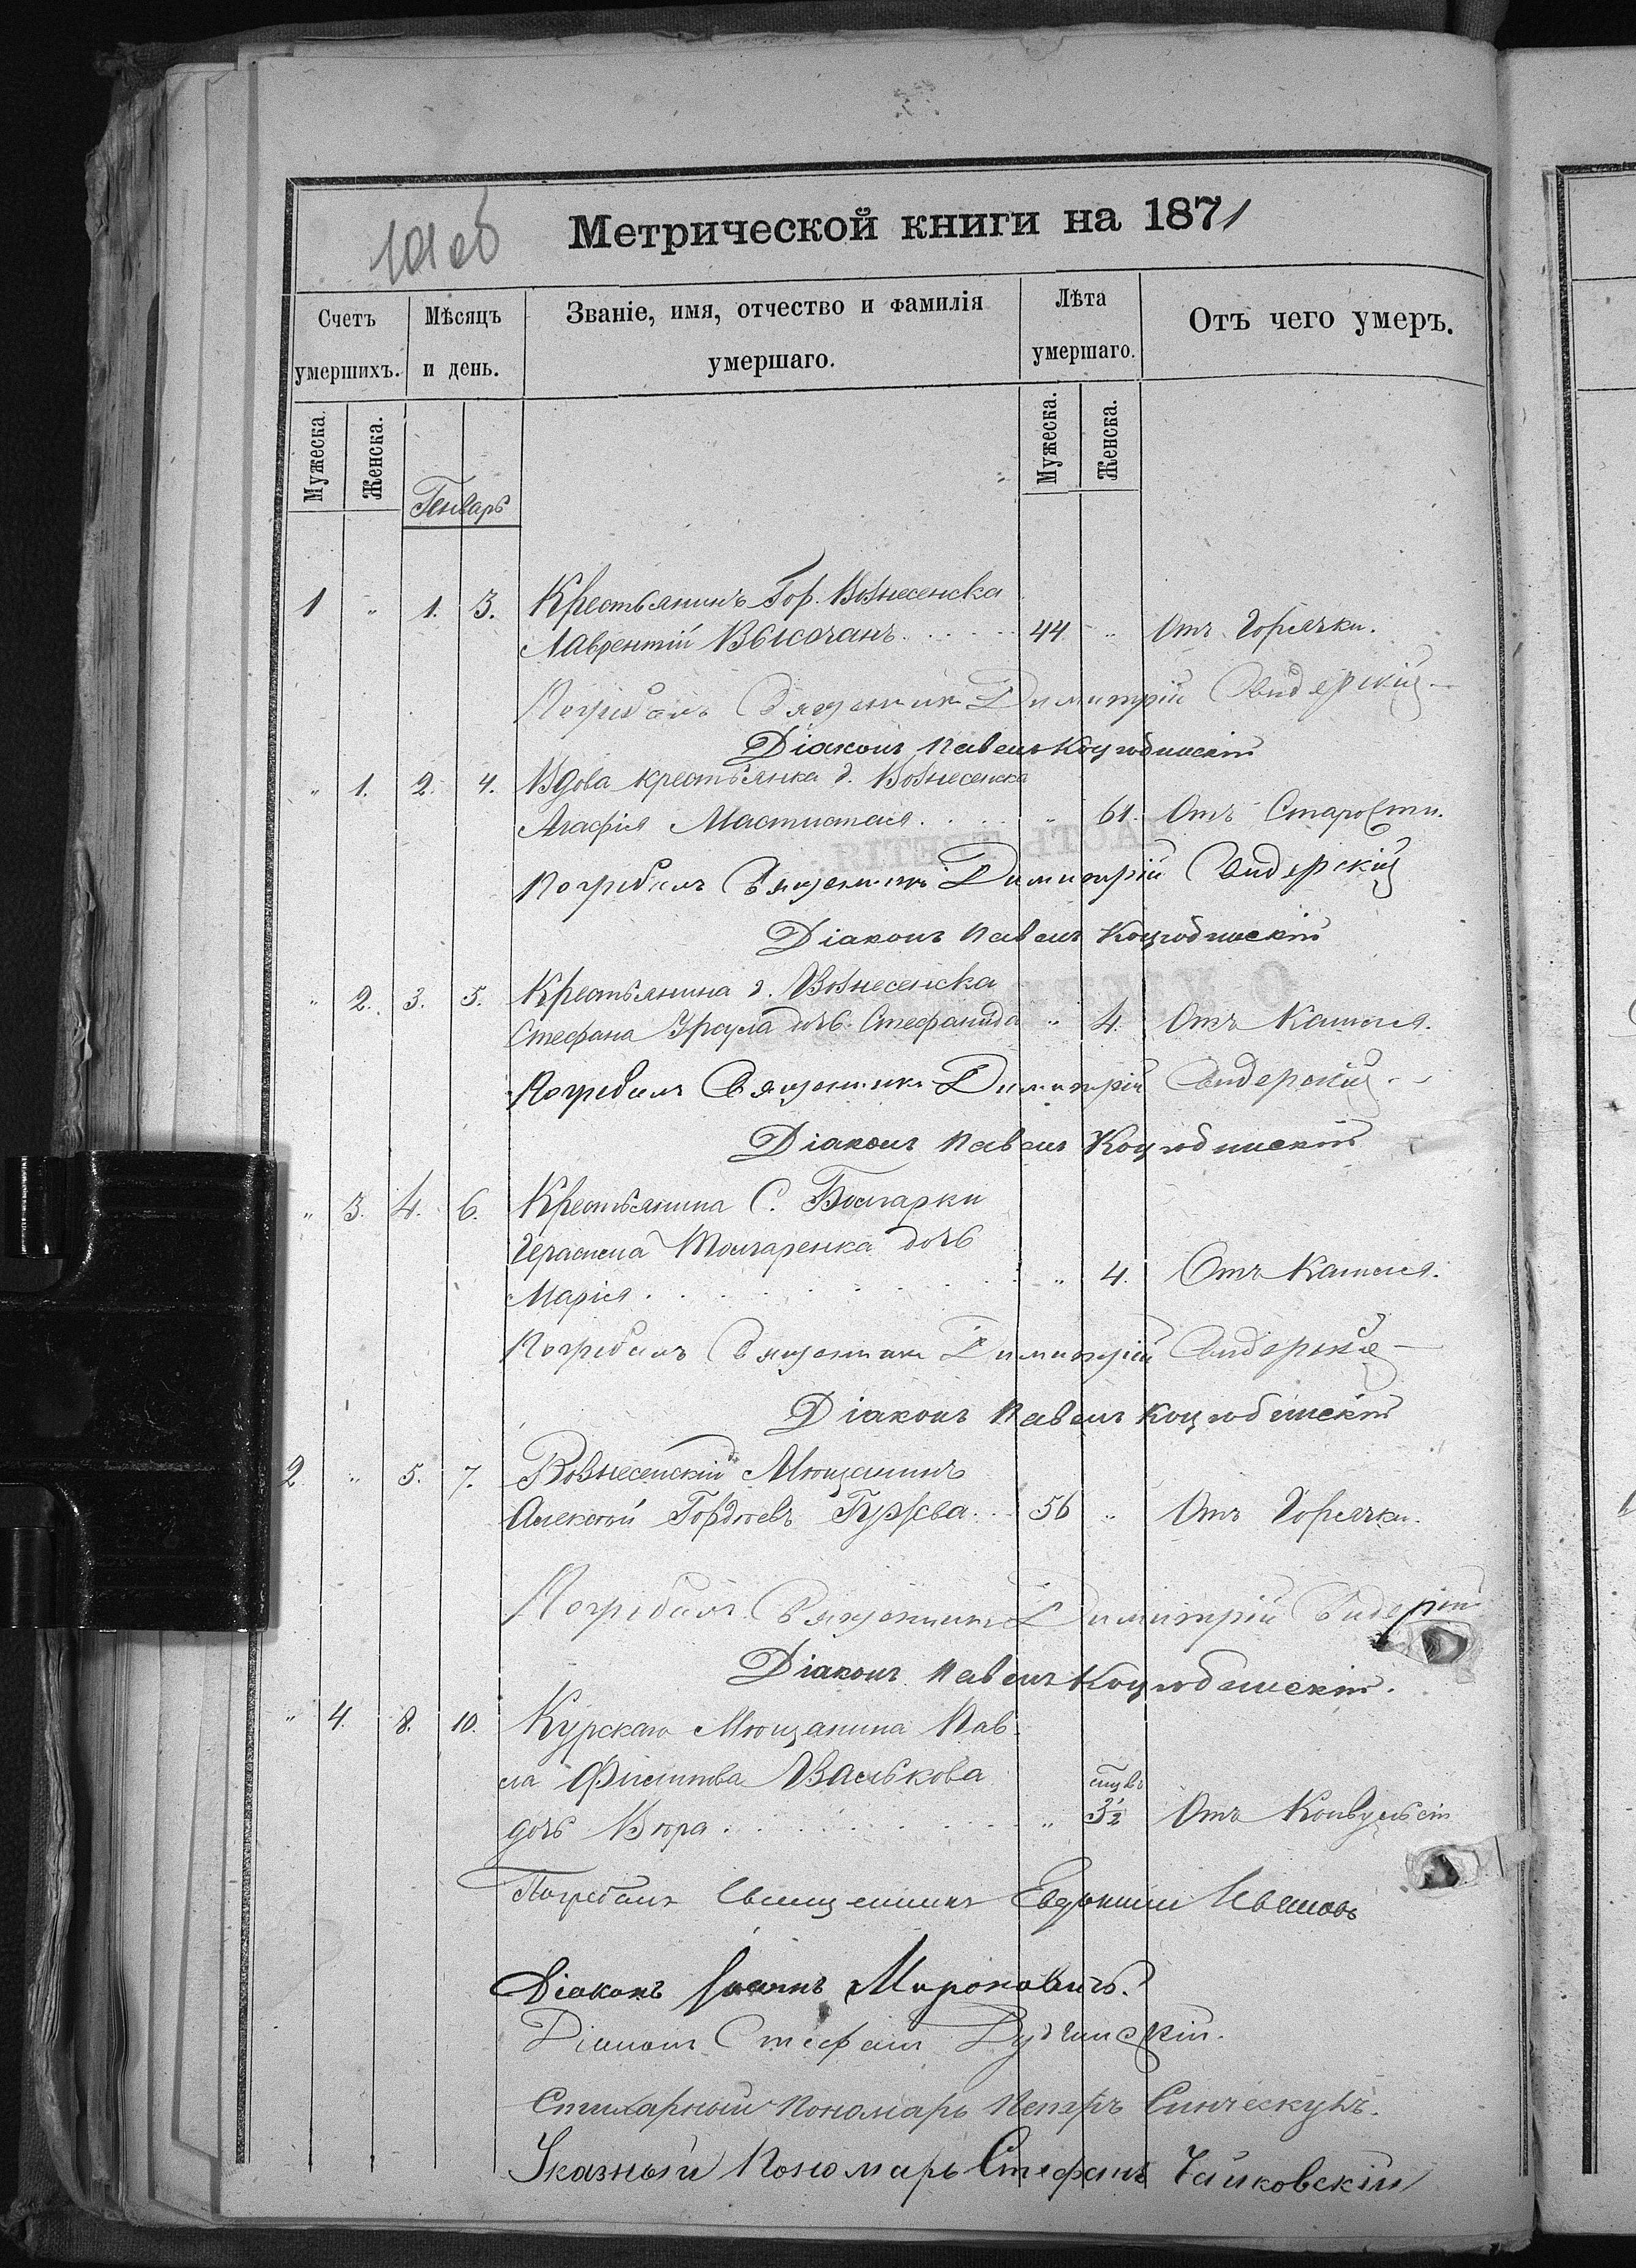 101 об
Метрической книги на 1871
Счетъ умершихъ.
Мѣсяцъ и день.
Званіе, имя, отчество и фамилія умершаго.
Лѣта умершаго.
Отъ чего умеръ.
Мужеска.
Женска.
Мужеска.
Женска.
Генварь
1 " 1. 3. Крестьянинъ Гор. Вознесенска
Лаврентій Высочанъ 44 " Отъ Горячки.
Погребалъ Священникъ Димитрій Свидерскій
Діаконъ Павелъ Коцюбинскій
" 1. 2. 4. Вдова крестьянка г. Вознесенска
Агафія Мастистая " 61. Отъ Старости.
Погребалъ Священникъ Димитрій Свидерскій
Діаконъ Павелъ Коцюбинскій
" 2. 3. 5. Крестьянина г. Вознесенска
Стефана дочь Стефанида " 4. Отъ Кашля.
Погребалъ Священникъ Димитрій Свидерскій
Діаконъ Павелъ Коцюбинскій
" 3. 4. 6. Крестьянина С. Болгарки
Герасима дочь
Марія " 4. Отъ Кашля.
Погребалъ Священникъ Димитрій Свидерскій
Діаконъ Павелъ Коцюбинскій
2 " 5. 7. Вознесенскій Мѣщанинъ
Алексѣй Гордѣевъ 56 " Отъ Горячки.
Погребалъ Священникъ Димитрій Свидерскій
Діаконъ Павелъ Коцюбинскій.
" 4. 8. 10. Курскаго Мѣщанина Пав-
ла Филипова Васькова
дочь Вѣра " 3½ Отъ Конвульсіи
Погребалъ Священникъ Евдокимъ Ивановъ
Діаконъ Іоаннъ Мироновичъ.
Діаконъ Стефанъ Дудчинскій.
Стихарный Пономарь Петръ
Указный Пономарь Стефанъ Чайковскій